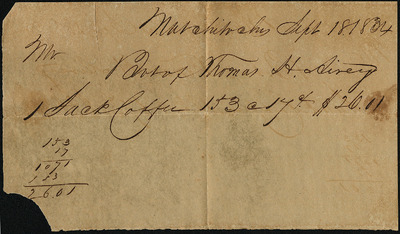 Natchitoches Sept 18 1834
Mr
Bot of Thomas H. Airey
1 Sack Coffee 153 a 17¢ $26.11
153
17
1071
153
26.01